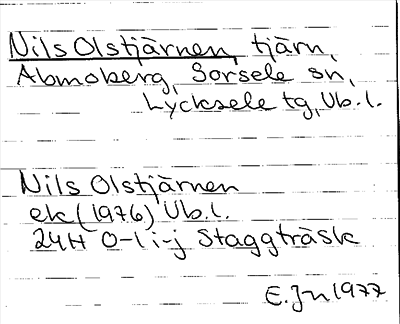 Nils Olstjärnen, tjärn,
Abmoberg, Sorsele sn,
Lycksele tg, Vb.l.
Nils Olstjärnen
ek (1976) Vb.l.
24H 0-1 i-j Staggträsk
E. Jn 1977